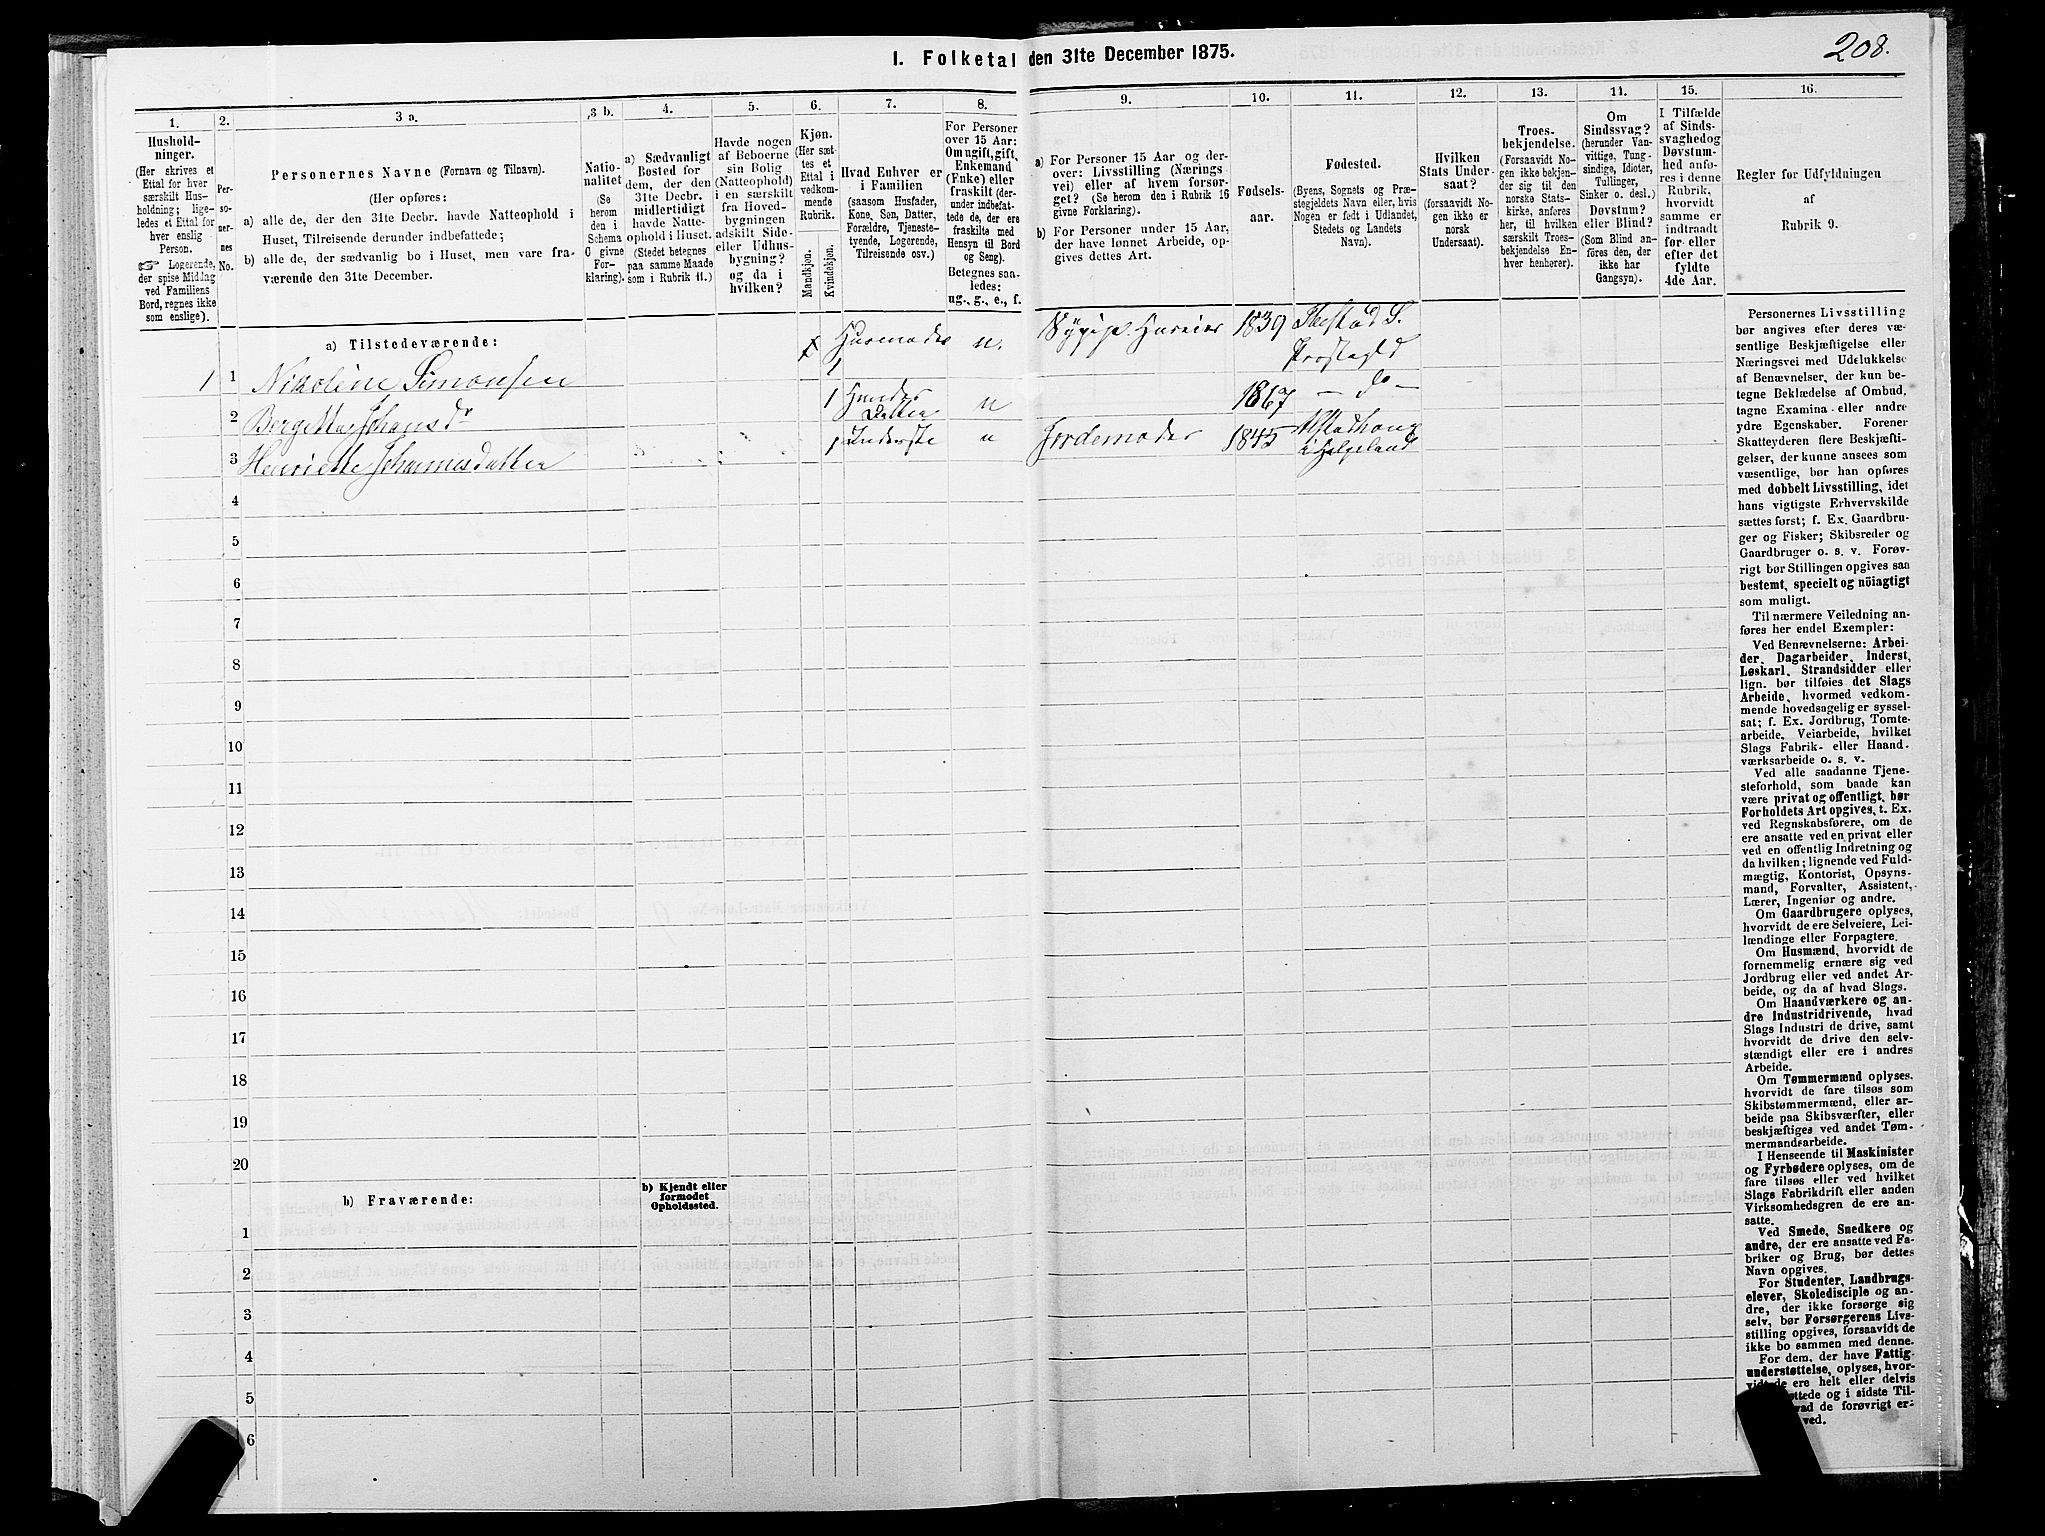 208.
I. Folketal den 31te December 1875.
1.
Hushold-
ninger.
(Her skrives et
Ettal for hver
særskilt Hus-
holdning; lige-
ledes et Ettal for
hver enslig
Person.
☞ Logerende,
der spise Middag
ved Familiens
Bord, regnes ikke
som enslige).
2.
Per-
so-
ner-
nes
No.
3 a.
Personernes Navne (Fornavn og Tilnavn).
(Her opføres:
a) alle de, der den 31te Decbr. havde Natteophold i
Huset, Tilreisende derunder indbefattede;
b) alle de, der sædvanlig bo i Huset, men vare fra-
værende den 31te December.
3 b.
Natio-
nalitet
(Se
herom
den i
Schema
6 givne
For-
klaring).
4.
a) Sædvanligt
Bosted for
dem, der den
31te Decbr.
midlertidigt
havde Natte-
ophold i Huset.
(Stedet betegnes
paa samme Maade
som i Rubrik 11.)
5.
Havde nogen
af Beboerne
sin Bolig
(Natteophold)
i en særskilt
fra Hoved-
bygningen
adskilt Side-
eller Udhus-
bygning?
og da i
hvilken?
6.
Kjøn.
(Her sæt-
tes et
Ettal i
vedkom-
mende
Rubrik.
Mandkjøn.
Kvindekjøn.
7.
Hvad Enhver er
i Familien
(saasom Husfader,
Kone, Søn, Datter,
Forældre, Tjeneste-
tyende, Logerende,
Tilreisende osv.)
8.
For Personer
over 15 Aar:
Om ugift, gift,
Enkemand
(Enke) eller
fraskilt (der-
under indbefat-
tede de, der ere
fraskilte med
Hensyn til Bord
og Seng).
Betegnes saa-
ledes:
ug., g., e., f.
9.
a) For Personer 15 Aar og der-
over: Livsstilling (Nærings-
vei) eller af hvem forsør-
get? (Se herom den i Rubrik 16
givne Forklaring).
b) For Personer under 15 Aar,
der have lønnet Arbeide, op-
gives dettes Art.
10.
Fødsels-
aar.
11.
Fødested.
(Byens, Sognets og Præ-
stegjeldets Navn eller, hvis
Nogen er født i Udlandet,
Stedets og Landets
Navn).
12.
Hvilken
Stats Under-
saat?
(forsaavidt No-
gen ikke er
norsk
Undersaat).
13.
Troes-
bekjendelse.
(Forsaavidt No-
gen ikke bekjen-
der sig til den
norske Stats-
kirke, anføres
her, til hvilken
særskilt Troes-
bekjendelse En-
hver henhører).
14.
Om
Sindssvag?
(herunder Van-
vittige, Tung-
sindige, Idioter,
Tullinger,
Sinker o. desl.)
Døvstum?
eller Blind?
(Som Blind an-
føres den, der
ikke har
Gangsyn).
15.
I Tilfælde
af Sinds-
svaghed og
Døvstum-
hed anfø-
res i denne
Rubrik,
hvorvidt
samme er
indtraadt
før eller
efter det
fyldte
4de Aar.
16.
Regler for Udfyldningen
af
Rubrik 9.
a) Tilstedeværende:
1 1 Nikoline Simonsen 1 Husmoder u. Sypige Huseier 1839 Ibestad S. Prostegld
2 Bergette Johansdr 1 Hendes Datter u 1867 – do –
3 Henriette Johannesdatter 1 Inderste u Jordemoder 1845 Alstadhoug i Helgeland
4
5
6
7
8
9
10
11
12
13
14
15
16
17
18
19
20
b) Fraværende:
b) Kjendt eller
formodet
Opholdssted.
1
2
3
4
5
6
Personernes Livsstilling
bør angives efter deres væ-
sentlige Beskjæftigelse eller
Næringsvei med Udelukkelse
af Benævnelser, der kun be-
tegne Beklædelse af Ombud,
tagne Examina eller andre
ydre Egenskaber. Forener
Skatteyderen flere Beskjæfti-
gelser, der kunne ansees som
væsentlige, bør han opføres
med dobbelt Livsstilling, idet
hans vigtigste Erhvervskilde
sættes først; f. Ex. Gaardbru-
ger og Fisker; Skibsreder og
Gaardbruger o. s. v. Forøv-
rigt bør Stillingen opgives saa
bestemt, specielt og nöiagtigt
som muligt.
Til nærmere Veiledning an-
føres her endel Exempler:
Ved Benævnelserne: Arbei-
der, Dagarbeider, Inderst,
Løskarl, Strandsidder eller
lign. bør tilføies det Slags
Arbeide, hvormed vedkom-
mende hovedsagelig er syssel-
sat; f. Ex. Jordbrug, Tomte-
arbeide, Veiarbeide, hvilket
Slags Fabrik- eller Haand-
værksarbeide o. s. v.
Ved alle saadanne Tjene-
steforhold, som baade kan
være privat og offentligt, bør
Forholdets Art opgives, t. Ex.
ved Regnskabsførere, om de
ere ansatte ved en privat eller
ved en offentlig Indretning og
da hvilken; lignende ved Fuld-
mægtig, Kontorist, Opsyns-
mand, Forvalter, Assistent,
Lærer, Ingeniør og andre.
Om Gaardbrugere oplyses,
hvorvidt de ere Selveiere, Lei-
lændinge eller Forpagtere.
Om Husmænd, hvorvidt de
fornemmelig ernære sig ved
Jordbrug eller ved andet Ar-
beide, og da af hvad Slags.
Om Haandværkere og an-
dre Industridrivende, hvad
Slags Industri de drive, samt
hvorvidt de drive den selv-
stændigt eller ere i andres
Arbeide.
Om Tømmermænd oplyses,
hvorvidt de fare tilsøs som
Skibstømmermænd, eller ar-
beide paa Skibsværfter, eller
beskjæftiges ved andet Tøm-
mermandsarbeide.
I Henseende til Maskinister
og Fyrbødere oplyses, om de
fare tilsøs eller ved hvilket
Slags Fabrikdrift eller anden
Virksomhedsgren de ere an-
satte.
Ved Smede, Snedkere og
andre, der ere ansatte ved Fa-
briker og Brug, bør dettes
Navn opgives.
For Studenter, Landbrugs-
elever, Skoledisciple og an-
dre, der ikke forsørge sig
selv, bør Forsørgerens Livs-
stilling opgives, forsaavidt de
ikke bo sammen med denne.
For dem, der have Fattig-
understøttelse, oplyses, hvor-
de ere helt eller delvis
og i sidste Til-
de forøvrigt er-
ved.